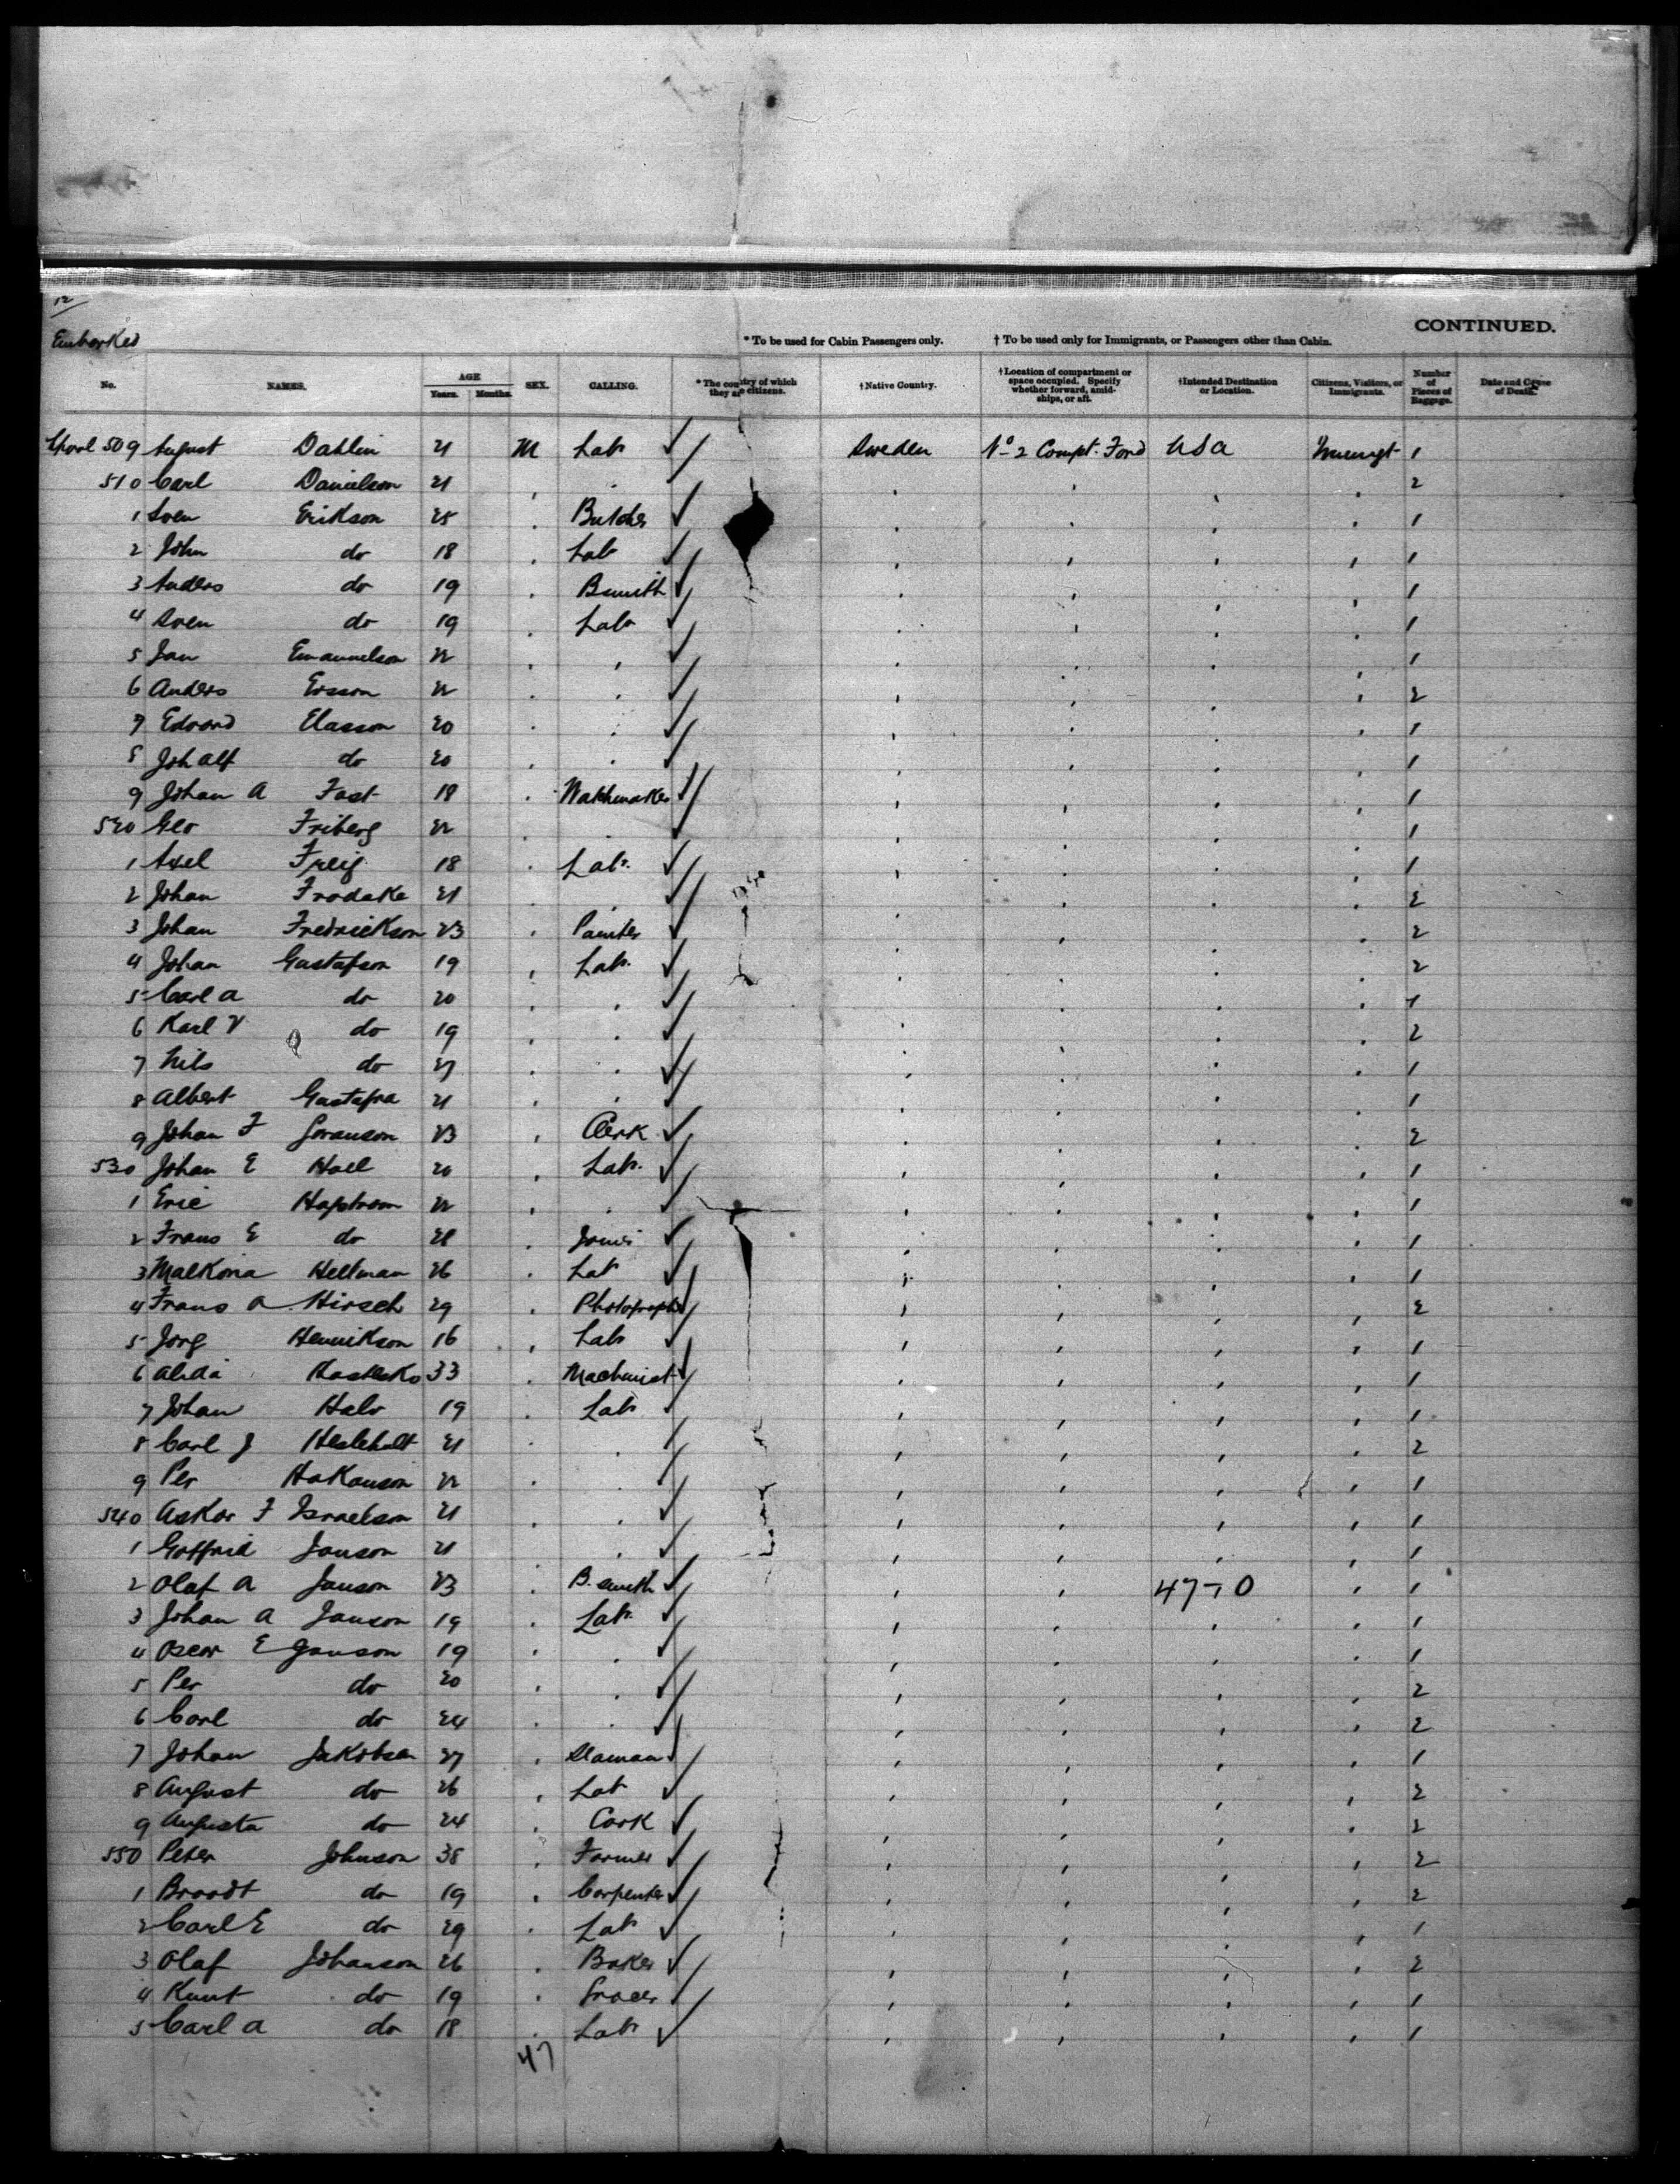 12
Embarked
CONTINUED.
* To be used for Cabin Passengers only. † To be used only for Immigrants, or Passengers other than Cabin.
No. NAMES. AGE Years. Months. SEX. CALLING. * The country of which they are citizens. † Native Country. † Location of compartment or space occupied. Specify whether forward, amidships, or aft. † Intended Destination or Location. Citizens, Visitors, or Immigrants. Number of Pieces of Baggage. Date and Cause of Death.
509 August Dahlin 21 M Lab Sweden No 2 Compt. Ford USA Immigt 1
510 Carl Danielson 21 2
1 Sven Erikson 25 Butcher 1
2 John do 18 Lab 1
3 Anders do 19 Bsmith 1
4 Sven do 19 Lab 1
5 Jan Emanuelson 22 1
6 Anders Ersson 22 2
7 Edvard Elasson 20 1
8 Joh Alf do 20 1
9 Johan A Fast 18 Watchmaker 1
520 Geo Friberg 22 1
1 Axel Freig 18 Lab. 1
2 Johan Frodake 21 2
3 Johan Fredrickson 23 Painter 2
4 Johan Gustafson 19 Lab. 2
5 Carl A do 20 1
6 Karl V do 19 2
7 Nils do 27 1
8 Albert Gustafva 21 1
9 Johan F Goranson 23 Clerk 2
530 Johan E Hall 20 Lab. 1
1 Eric 22 1
2 Frans E do 21 1
3 Hellman 26 Lab 1
4 Frans A Hirsch 29 Photograph 2
5 Jorg Henrikson 16 Lab 1
6 33 Machinist 1
7 Johan Halv 19 Lab 1
8 Carl J 21 2
9 Per Hakanson 22 1
540 Askar F Israelson 21 1
1 Gottfrid Janson 21 1
2 Olaf A Janson 23 B. smith 47-0 1
3 Johan A Janson 19 Lab. 1
4 Oscar E Janson 19 1
5 Per do 20 2
6 Carl do 24 2
7 Johan Jakobsen 27 Seaman 1
8 August do 26 Lab 2
9 Augusta do 24 Cook 2
550 Peter Johnson 38 Farmer 2
1 do 19 Carpenter 2
2 Carl E do 29 Lab 1
3 Olaf Johanson 26 Baker 2
4 Knut do 19 Grocer 1
5 Carl A do 18 Lab 1
47